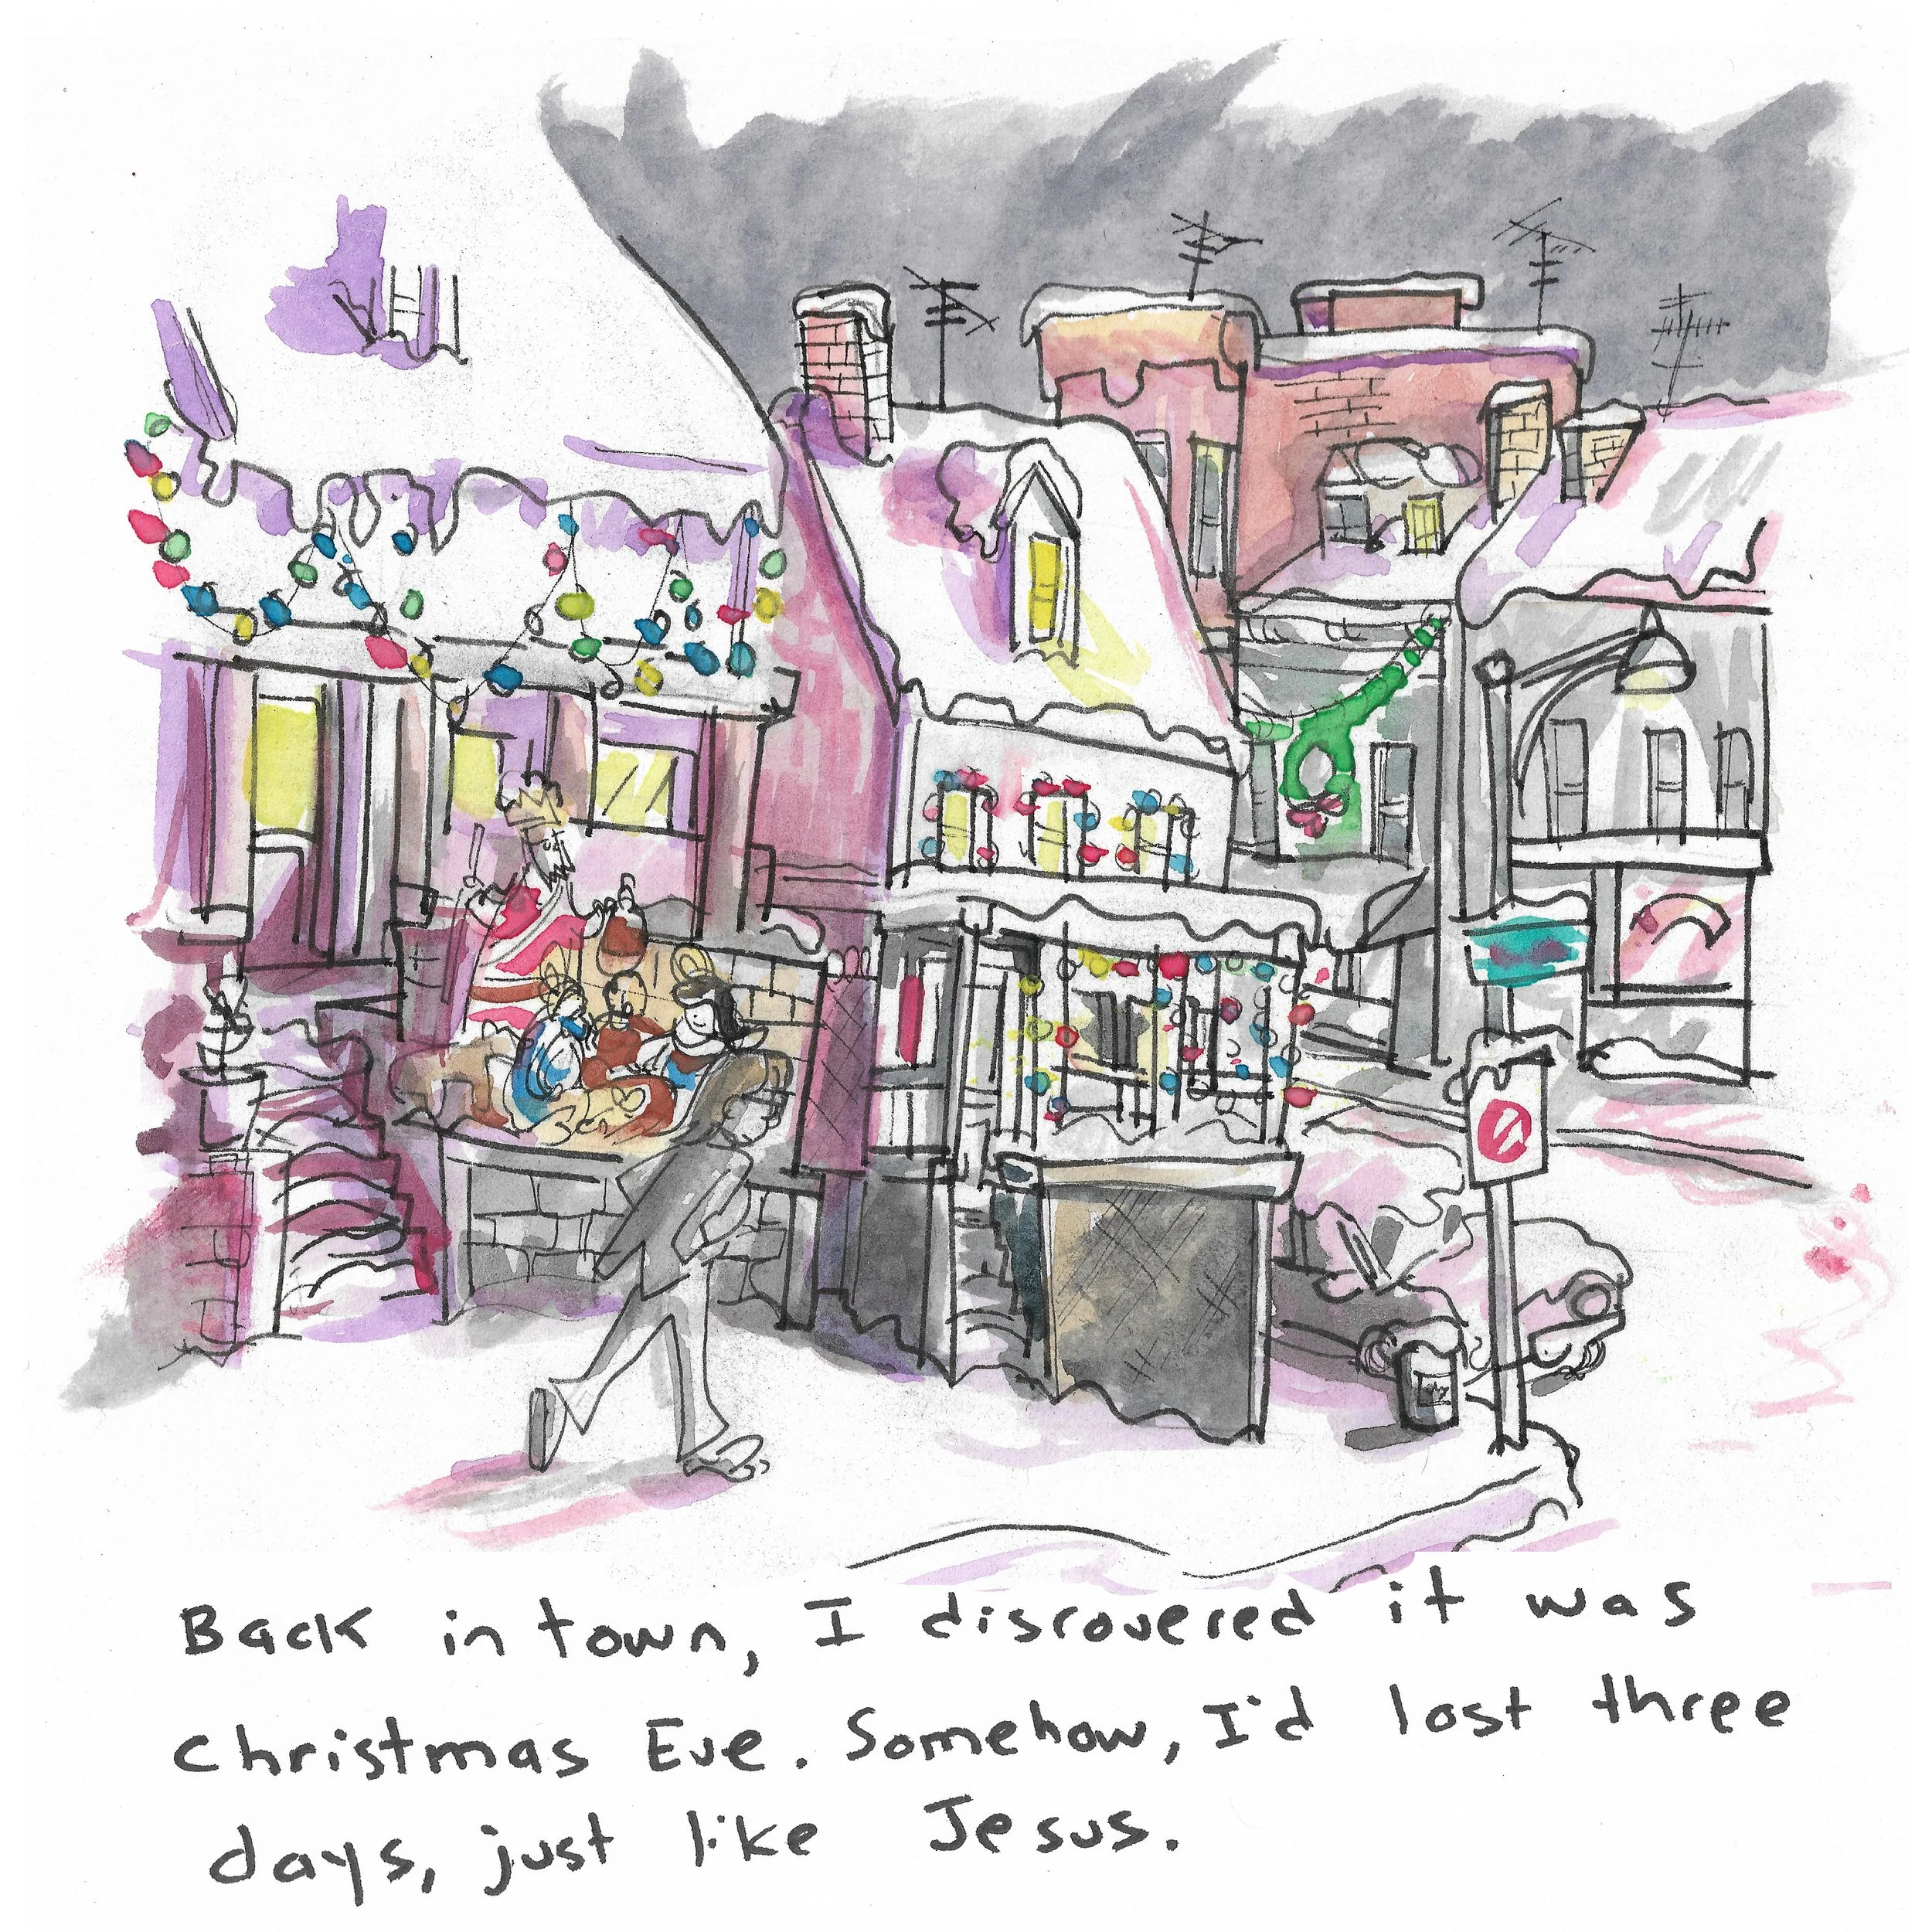 Back in town, I discovered it was
Christmas Eve. Somehow, I'd lost three
days, just like Jesus.